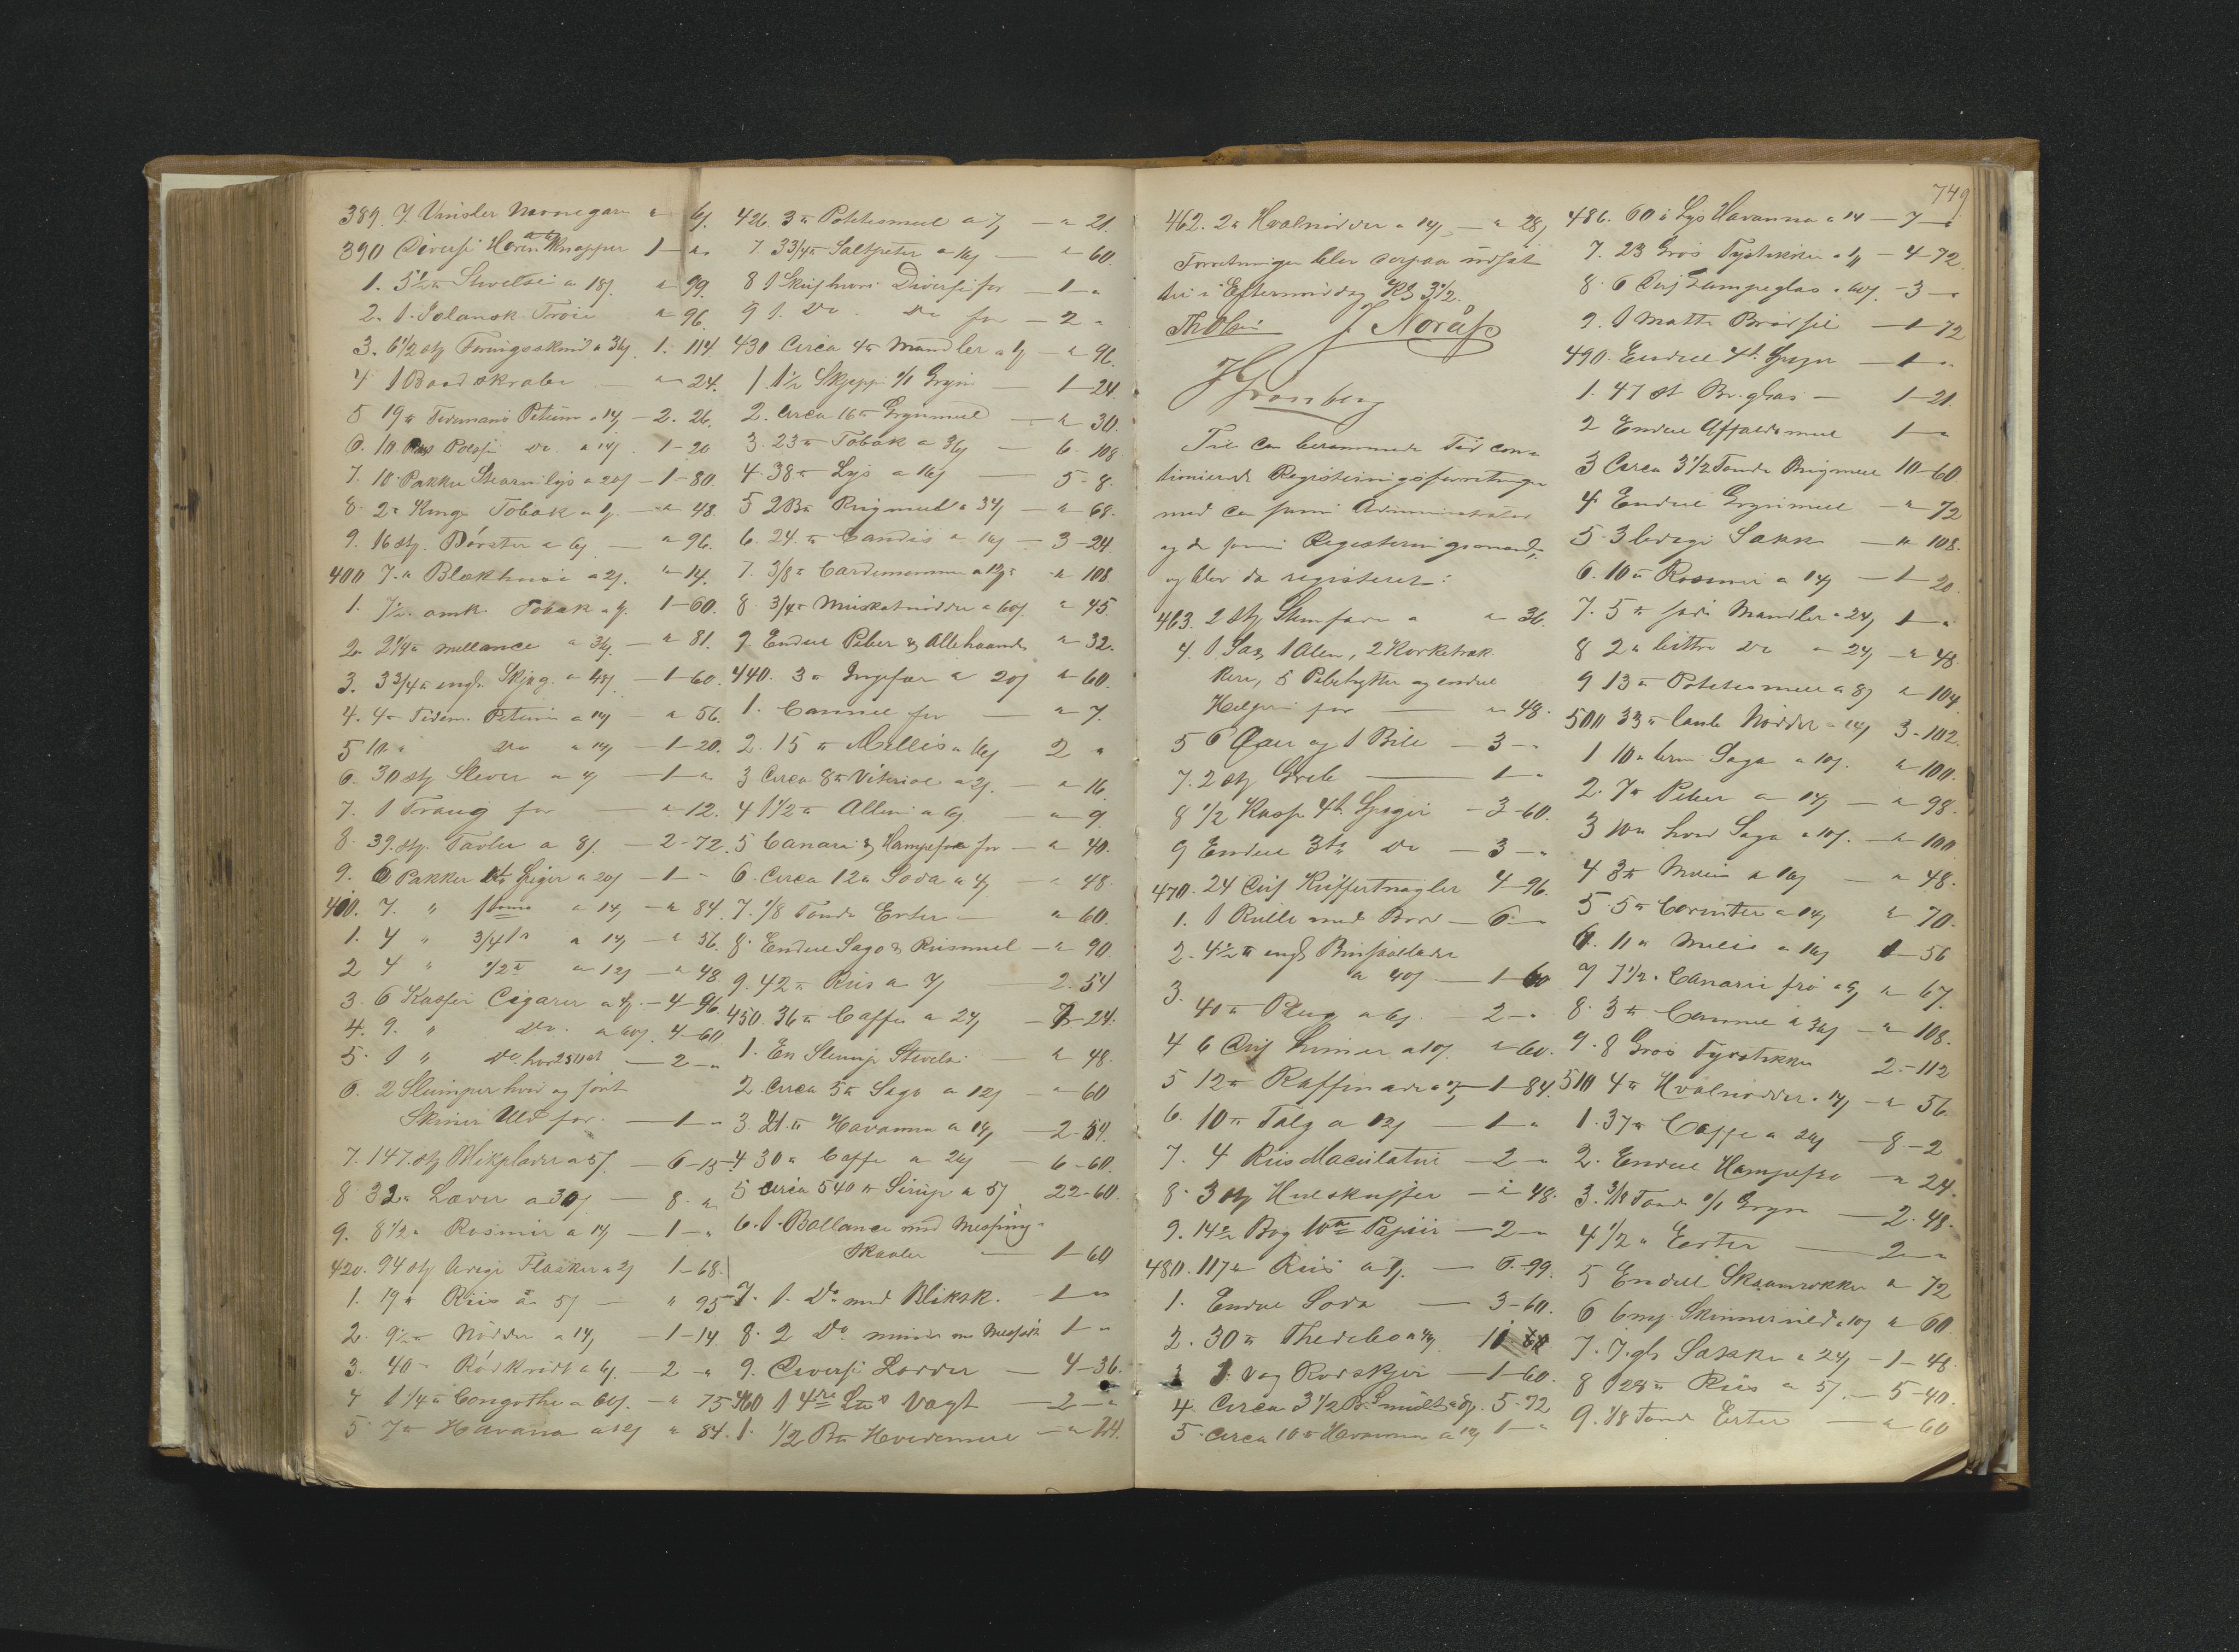 389. 7 Vinsler Monegarn a " 6/.
390 Diversi Horn Knapper 1 — "
1. 5 1/2 ℔ Stivelse a 18/. " 99.
2. 1. Islansk Troie " 96.
3. 6 1/2 stk Foringsskind a 36/ 1. 114
4 1 Baadskrabe — " 24.
5 19 ℔ Tiedemans Petum a 14/ — 2. 26.
6. 10 do a 14/ 1-20
7. 10 Pakker Stearinlys a 20/ — 1-80.
8. 2 ℔ Tobak — " 48.
9. 16 stk. Börster a 6/ — " 96.
400 7. " Blækhuse a 2/. " 14.
1. 7 1/2. amk. Tobak 1-60.
2. 2 1/4 ℔ mellance a 36/. — " 81.
3. 3 3/4 ℔ engl. Skjag. — 1-60.
4. 4 ℔ Tidem. Petum a 14/ — " 56.
5 10 " do a 14/ — 1-20.
6. 30 stk Slever a 4/ — 1 — "
7. 1 Traug for — " 12.
8. 39. stk. Tavler a 8/. — 2-72.
9. 6 Pakker Spiger a 20/ — 1 - "
410. 7. " a 14/ — " 84.
1. 4 " 3/4 a 14/ — " 56.
2 4 " 1/2 a 12/ — " 48
3. 6 Kasser Cigarer — 4-96.
4. 9. " do. a 60/. 4-60
5. 1 " do. hver 250 st — 2 — "
6. 2 Slumper hvid og sort
Skinner Uld for. — 1 — "
7. 147. stk Blikplader a 5/. — 6-15
8 32 " Læder a 30/ — 8. "
9. 8 1/2 " Rosiner a 14/ — 1 — "
420. 94 stk ledige Flasker a 2/ 1-68.
1. 19 " Riis a 5/ — " 95
2. 9 1/2 ℔ Nödder a 14/ — 1-14
3. 40 " Rödkridt a 6/. — 2 — "
4 1 1/4 ℔ Congothe a 60/. — " 75
5 7 ℔ Havana a 12/ " 84.
426. 3 ℔ Potetesmeel a 7/ — " 21.
7. 3 3/4 ℔ Saltpeter a 16/ — " 60.
8 1 Skuf hvori Diversi for — 1 — "
9 1. do. do for — 2 "
430 Circa 4 ℔ Mandler — " 96.
1. 1 1/2 Skjeppe 1/1 Gryn — 1-24.
2. Circa 16 ℔ Grynmeel — " 30.
3. 23 ℔ Tobak a 36/ — 6. 108
4. 38 ℔ Lys a 16/ — 5-8.
5 2 B℔ Rugmeel a 34/ — " 68.
6. 24. ℔ Candis a 13/ — 3-24.
7. 3/8 ℔ Cardemomme — " 108.
8. 3/4 ℔ Muskatnödder a 60/. " 45.
9. Endeel Peber & Allehaande " 32.
440. 3 ℔ Ingefær a 20/ " 60.
1. Canneel for — " 7.
2. 15 ℔ Mellis a 16/ 2 "
3 Circa 8 ℔ Vitriol a 2/. — " 16
4 1 1/2 ℔ Allun a 6/ — " 9.
5 Canari & Hampefrø for — " 40.
6. Circa 12 ℔ Soda a 4/ — " 48.
7. 1/8 Tönde Erter — " 60.
8. Endeel Sago & Riismeel — " 90.
9. 42 ℔ Riis a 7/ 2. 54
450. 36 ℔ Caffe a 24/ — 7-24.
1. En Slump Stivelse — " 48.
2. Circa 5 ℔ Sago a 12/ — " 60
3. 21. ℔ Havanna a 14/ — 2-54.
4 30 " Caffe a 26/ — 6-60.
5 Circa 540 ℔ Sirup a 5/ 22-60.
6. 1. Ballance med Messing-
skaaler — 1-60
7. 1. do med Bliksk. — 1 — "
8. 2 do mindre 1 — "
9. Diversi Lodder — 4-36.
460 1 Vægt — 2 — "
1. 1/2 B℔ Hvedemeel — " 24.
749
462. 2 ℔ Hvalnödder a 14/ — " 28/
Forretningen blev derpaa udsat
til i Eftermiddag Kl 3 1/2.
J. Noraas
H. Gronberg
Til den berammede Tid con-
tinuerede Registeringsforretningen
med den samme Administrator
og de samme Registeringsmænd,
og blev da registeret:
463. 2 stk " 36.
4. 1 Sax, 1 Alen, 2 Korketræk-
kere, 5 Peberbytter og endeel
for — " 48.
5 6 Öxer og 1 Bile — 3 — "
7. 2 stk Greb — 1 — "
8 1/2 Kasse 4t. Spiger — 3-60.
9 Endeel 3t. do — 3 — "
470. 24 Dus Kuffertnagler 4-96.
1. 1 Rulle med Bord — 6 — "
2. 4 1/2 ℔ engl.
a 40/ — 1-60
3. 40 ℔ Plug a 6/. — 2 — "
4 6 Dus Limer a 10/. " 60.
5 12 ℔ Raffinade — 1-84.
6. 10 ℔ Talg a 12/ — 1 — "
7. 4 Riis Maculatur — 2 — "
8. 3 stk — " 48.
9. 14 Bog Papiir — 2 — "
480. 117 ℔ Riis — 6-99.
1. Endeel Soda — 3-60.
2. 30 ℔ Thedebo
3 1 Vog Rodskjær — 1-60.
4. Circa 3 1/2 5-72
5. Circa 10 ℔ Havanna a 12/ 1 — "
486. 60 ℔ Lys Havanna a 14 — 7 — "
7. 23 Gros Fystikker — 4-72.
8. 6 Dus Lampeglas a 60/. — 3 — "
9. 1 Matte Brödfil — 1-72
490. Endeel 4t. Spiger — 1 — "
1. 47 st Br. glas — 1-21.
2 Endeel Affaldsmeel 1 — "
3 Circa 3 1/2 Tönde Bugmeel 10-60
4 Endeel Grynmeel — " 72
5. 3 ledige Sække — " 108.
6. 10 ℔ Rosiner a 14/ — 1-20
7. 5 ℔ söde Mandler a 24/ 1 — "
8 2 ℔ bittre do a 24/ — " 48.
9 13 ℔ Potetesmeel a 8/ " 104
500 33 ℔ lamb. Nödder a 14/ 3-102.
1 10 ℔ brun Sago a 10/. " 100.
2. 7 ℔ Peber a 14/ — " 98.
3 10 ℔ hvid Sago a 10/. — " 100
4 3 ℔ a 16/ — " 48.
5. 5 ℔ Corinter a 14/ " 70.
6. 11 ℔ Melis a 16/ 1-56
7 7 1/2. Canarii frö a 9/ " 67.
8. 3 ℔ Canneel a 36/ — " 108.
9. 8 Gros Fyrstikker 2-112
510 4 ℔ Hvalnödder a 14/ — " 56.
1. 37 ℔ Caffe a 26/ — 8-2
2. Endeel Hampefrø — " 24.
3. 3/8 Tönde 1/1 Gryn — 2-48.
4 1/2 " Erter — 2 — "
5 Endeel " 72
6 6 a 10/ " 60.
7. 7. gl. Sække a 24/ — 1-48
8 128 ℔ Riis a 5/. — 5-40.
9. 1/8 Tönde Erter — " 60